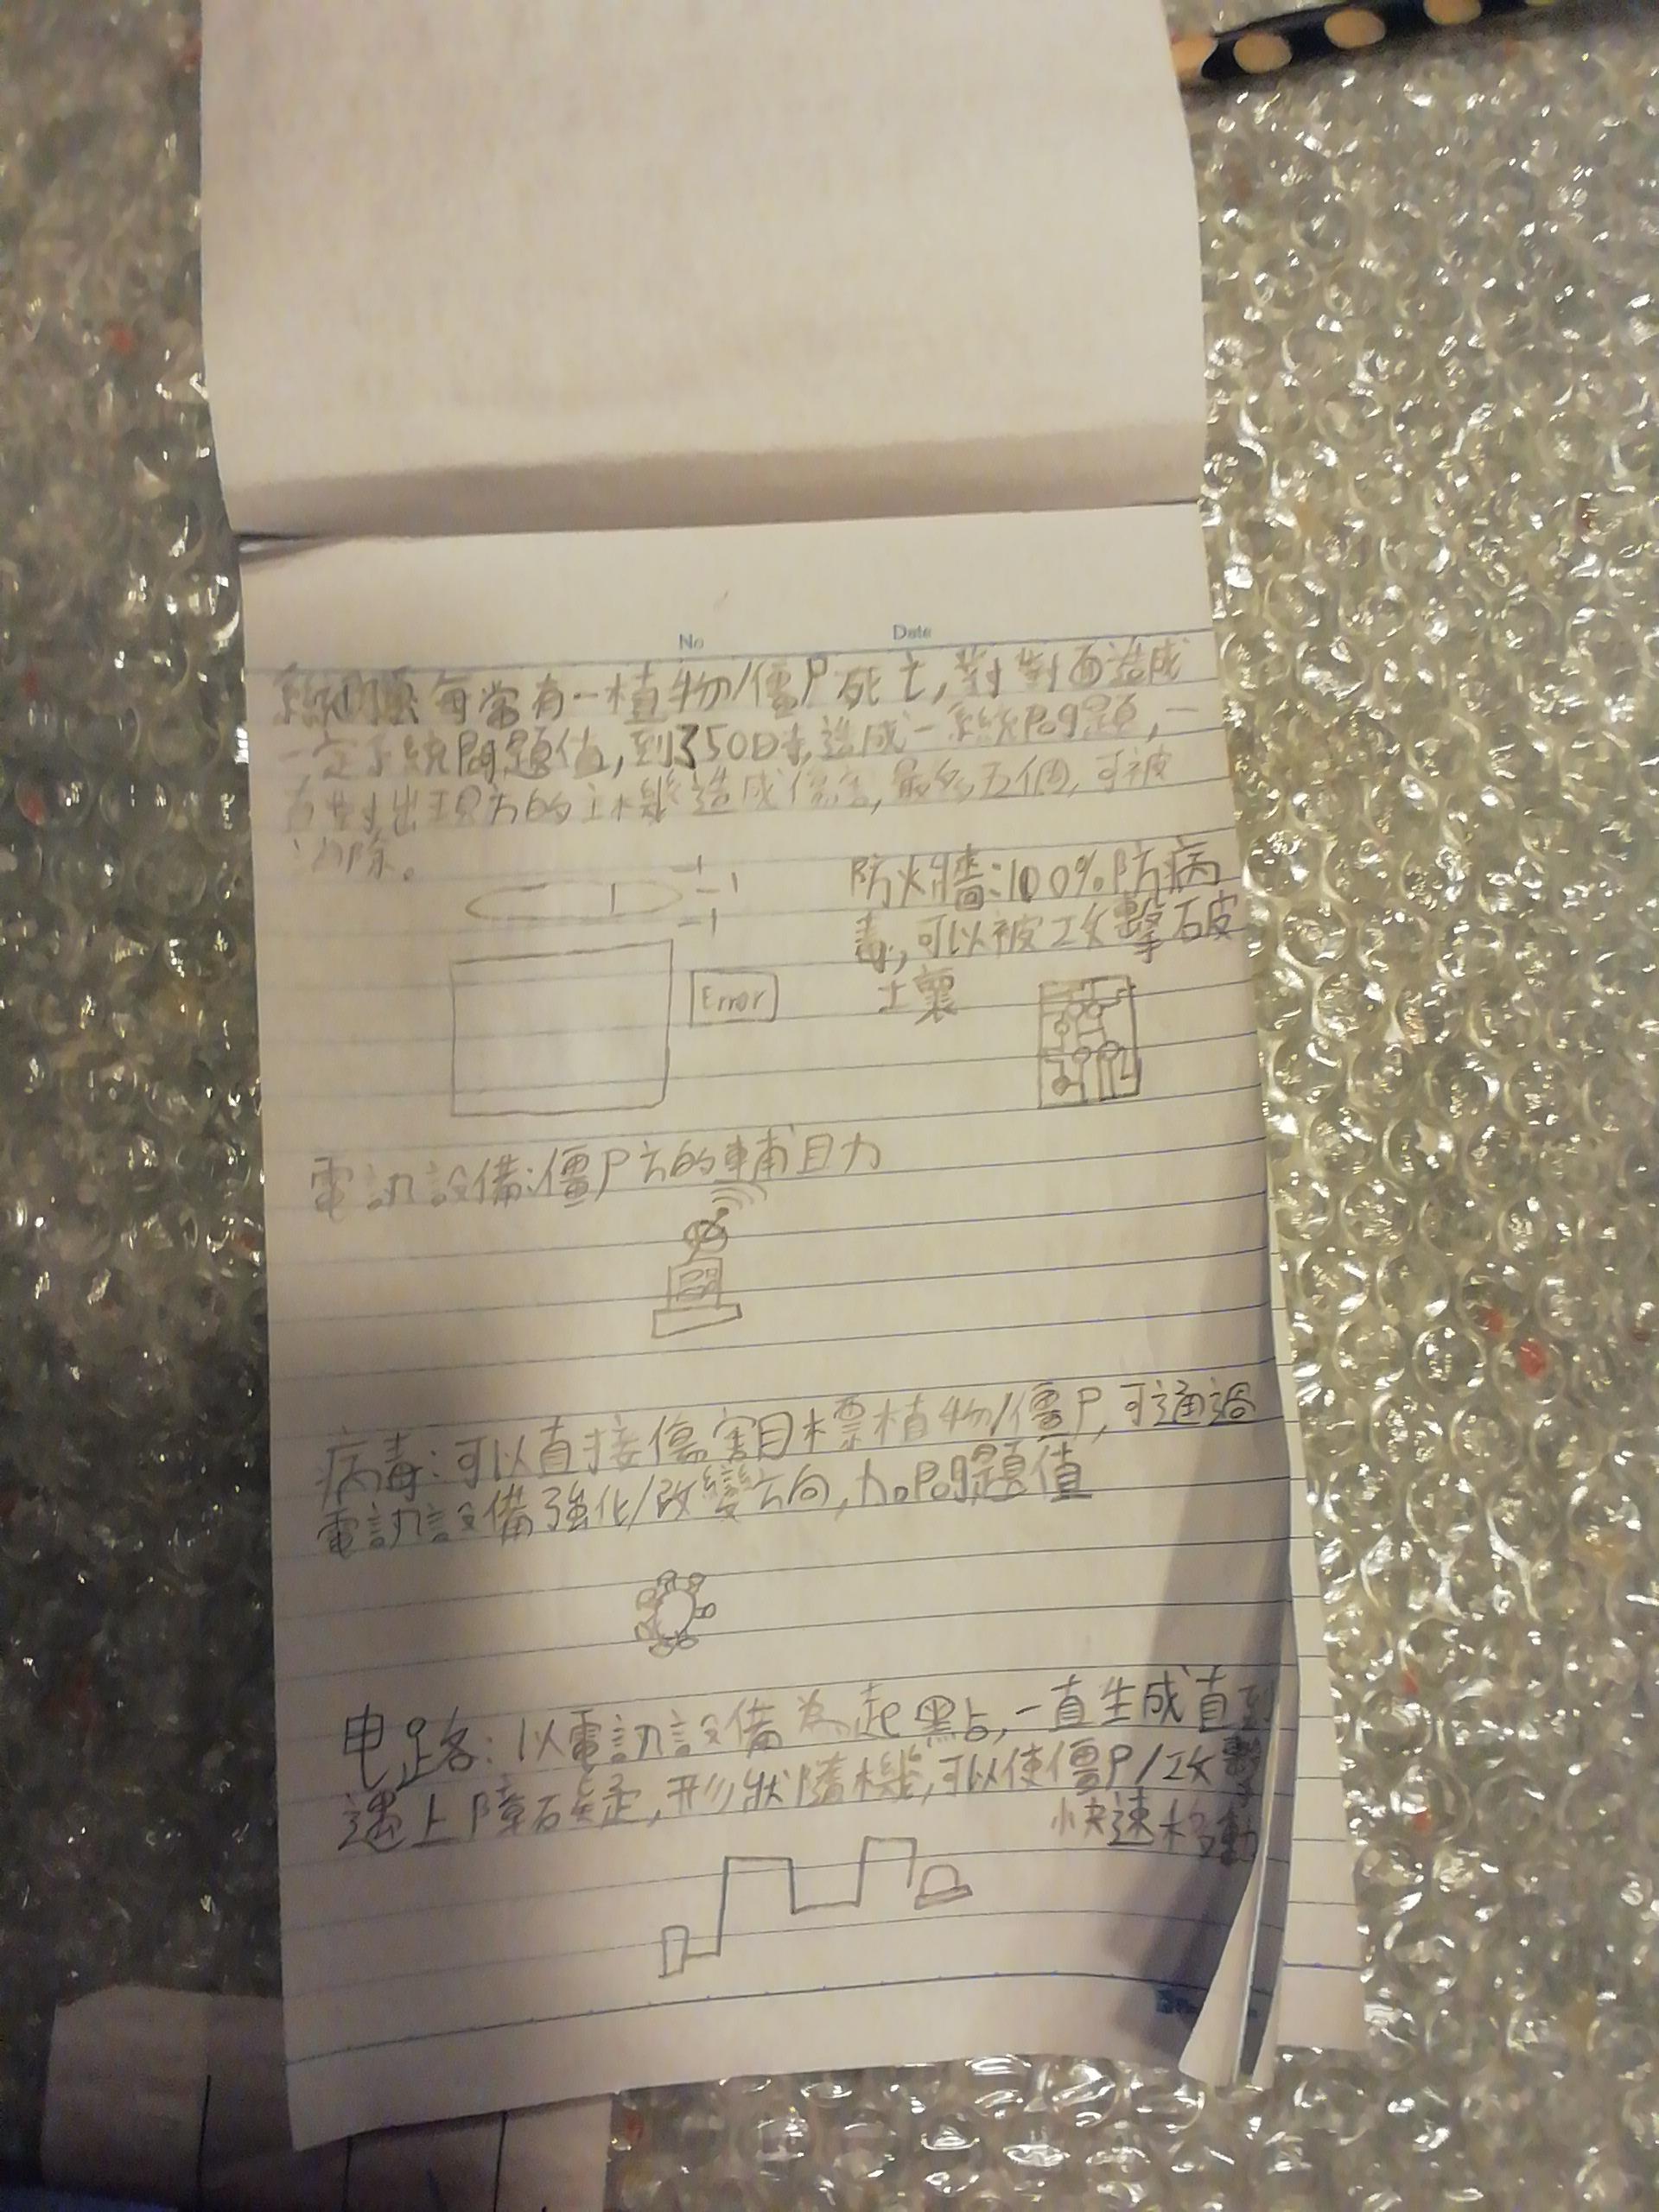 No Date
系統問題每當有一植物/僵尸死亡,對對面造成
一定系統問題值,到了50時,造成一系統問題,一
直對出現方的主機造成傷害,最多五個,可被
消除。
防火牆:100%防病
毒,可以被攻擊破
土襄
Error
電訊設備:僵尸方的輔助
病毒:可以直接傷害目標植物/僵尸,可通過
電訊設備強化/改變方向,加問題值
电路:以電訊設備為起點,一直生成直到
遇上障礙,形狀隨機,可以使僵尸/攻擊
快速移動